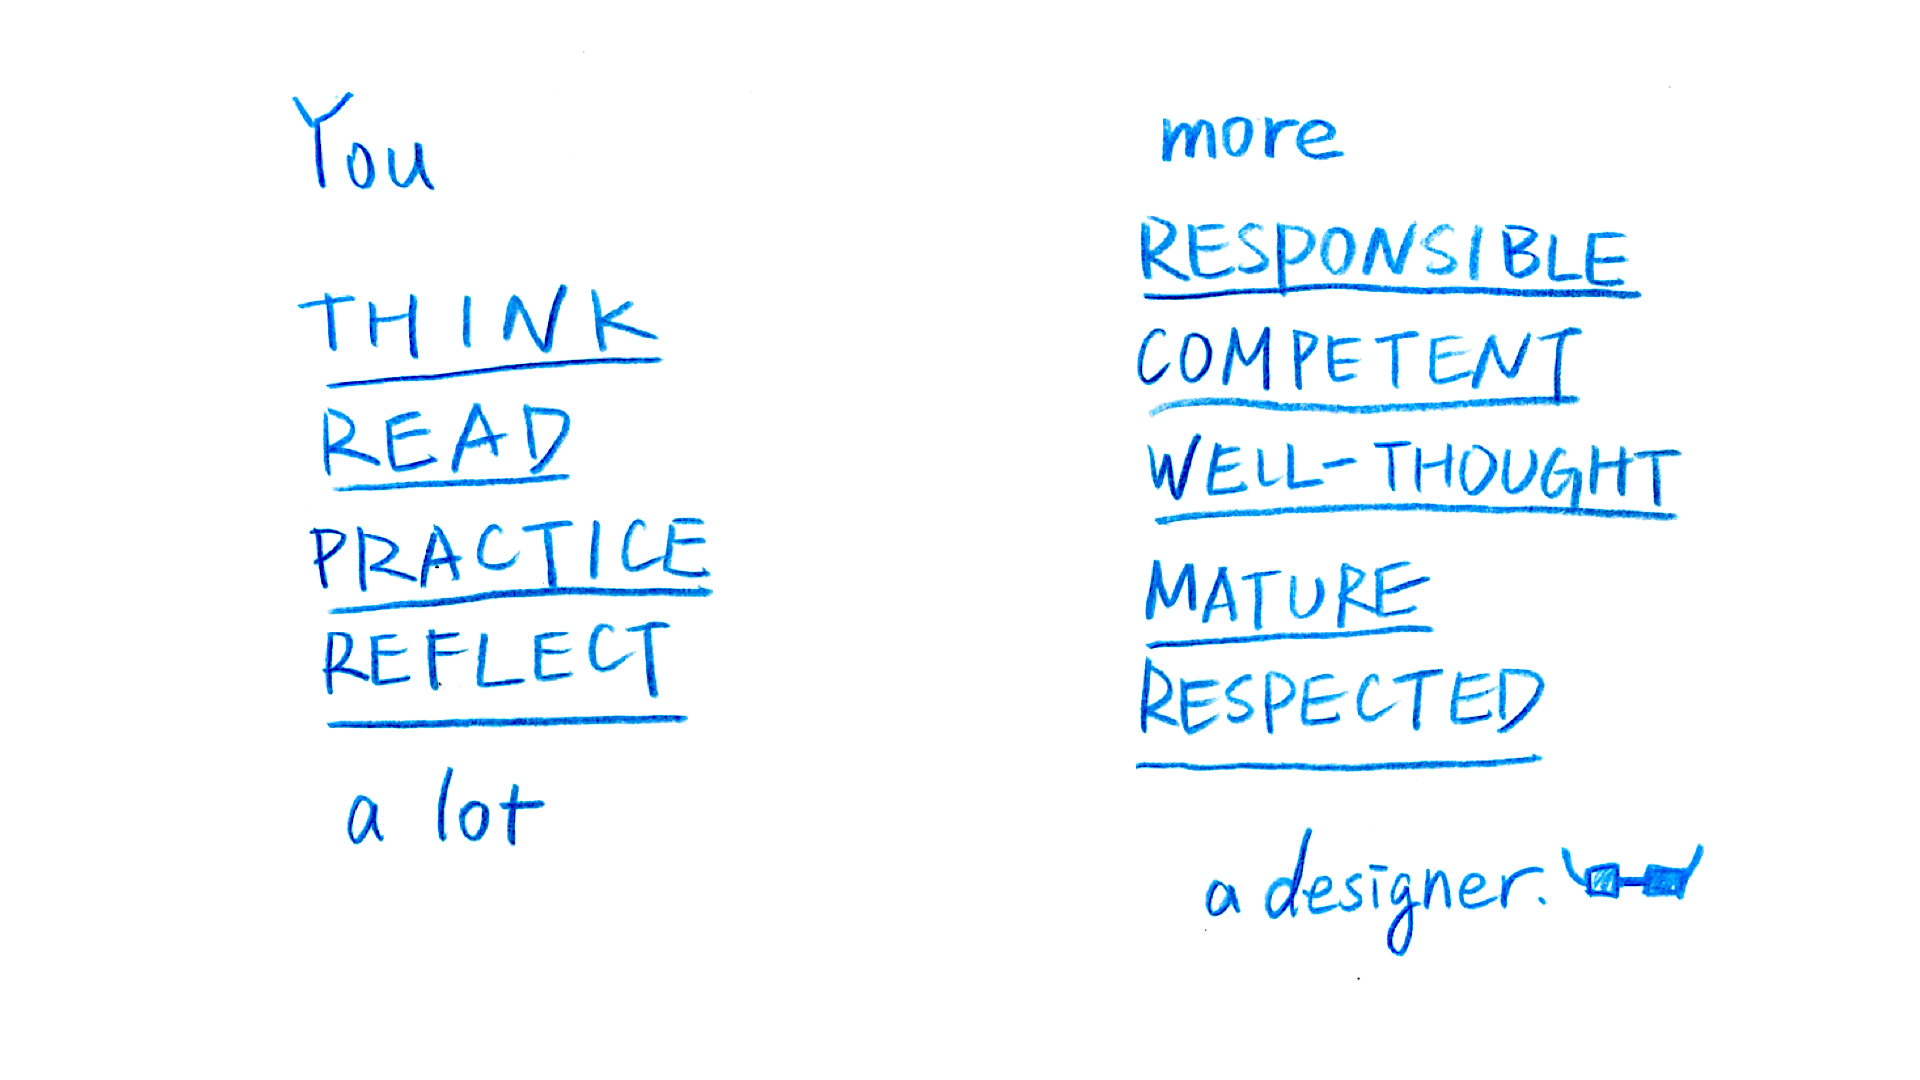 You
THINK
READ
PRACTICE
REFLECT
a lot
more
RESPONSIBLE
COMPETENT
WELL-THOUGHT
MATURE
RESPECTED
a designer.